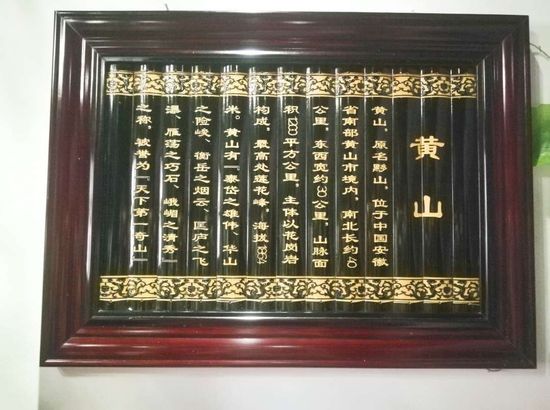 黄山
黄山，原名黟山，位于中国安徽
省南部黄山市境内。南北长约40
公里，东西宽约30公里。山脉面
积1200平方公里。主体以花岗岩
构成。最高处莲花峰，海拔1864
米。黄山有「泰岱之雄伟、华山
之险峻、衡岳之烟云、匡庐之飞
瀑、雁荡之巧石、峨嵋之清秀」
之称。被誉为「天下第一奇山」